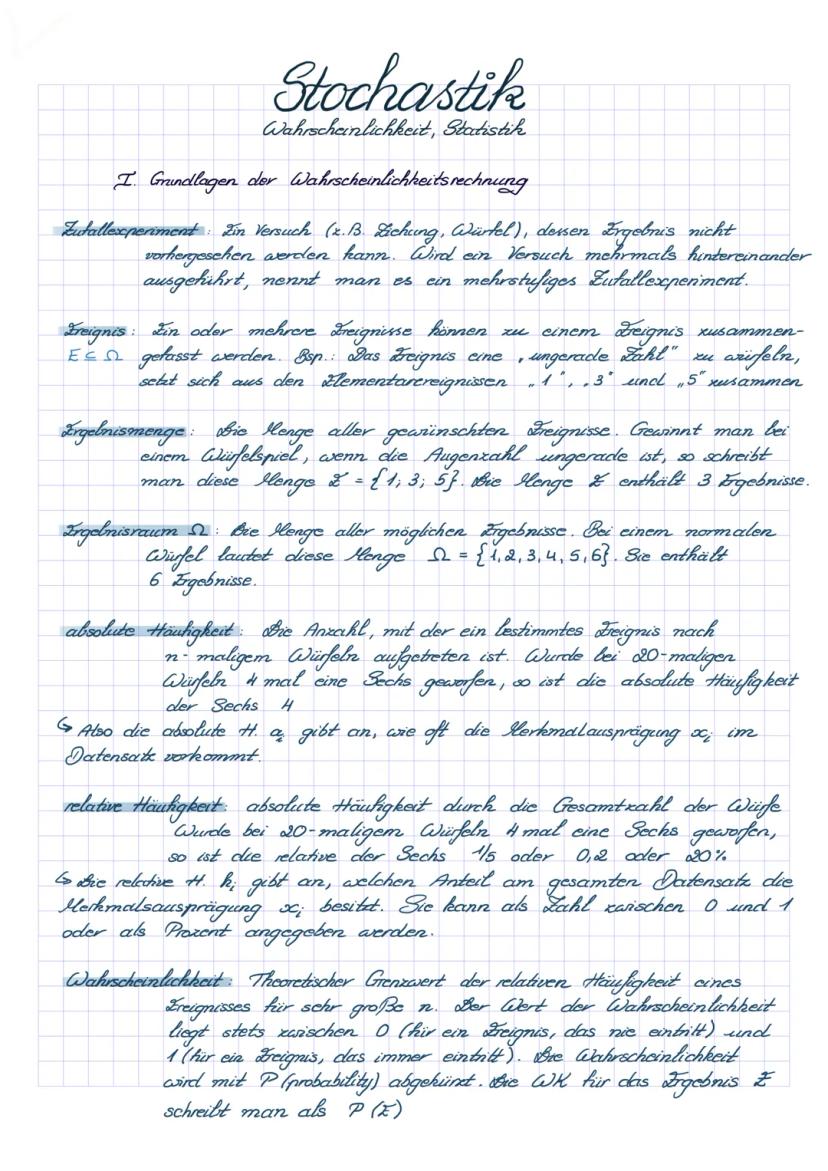 Stochastik
Wahrscheinlichkeit, Statistik
I. Grundlagen der Wahrscheinlichkeitsrechnung
Zufallexperiment: Ein Versuch (z.B. Ziehung, Würfel), dessen Ergebnis nicht
vorhergesehen werden kann. Wird ein Versuch mehrmals hintereinander
ausgeführt, nennt man es ein mehrstufiges Zufallexperiment.
Ereignis: Ein oder mehrere Ereignisse können zu einem Ereignis zusammen-
E ⊆ Ω gefasst werden. Bsp.: Das Ereignis eine „ungerade Zahl" zu würfeln,
setzt sich aus den Elementarereignissen „1", „3" und „5" zusammen
Ergebnismenge: Die Menge aller gewünschten Ereignisse. Gewinnt man bei
einem Würfelspiel, wenn die Augenzahl ungerade ist, so schreibt
man diese Menge E = {1; 3; 5}. Die Menge E enthält 3 Ergebnisse.
Ergebnisraum Ω: Die Menge aller möglichen Ergebnisse. Bei einem normalen
Würfel lautet diese Menge Ω = {1,2,3,4,5,6}. Sie enthält
6 Ergebnisse.
absolute Häufigkeit: Die Anzahl, mit der ein bestimmtes Ereignis nach
n-maligem Würfeln aufgetreten ist. Wurde bei 20-maligen
Würfeln 4 mal eine Sechs geworfen, so ist die absolute Häufigkeit
der Sechs 4
↳ Also die absolute H. aᵢ gibt an, wie oft die Merkmalausprägung xᵢ im
Datensatz vorkommt.
relative Häufigkeit: absolute Häufigkeit durch die Gesamtzahl der Würfe
Wurde bei 20-maligem Würfeln 4 mal eine Sechs geworfen,
so ist die relative der Sechs 1/5 oder 0,2 oder 20%
↳ Die relative H. hᵢ gibt an, welchen Anteil am gesamten Datensatz die
Merkmalsausprägung xᵢ besitzt. Sie kann als Zahl zwischen 0 und 1
oder als Prozent angegeben werden.
Wahrscheinlichkeit: Theoretischer Grenzwert der relativen Häufigkeit eines
Ereignisses für sehr große n. Der Wert der Wahrscheinlichkeit
liegt stets zwischen 0 (für ein Ereignis, das nie eintritt) und
1 (für ein Ereignis, das immer eintritt). Die Wahrscheinlichkeit
wird mit P (probability) abgekürzt. Die WK für das Ergebnis E
schreibt man als P (E)